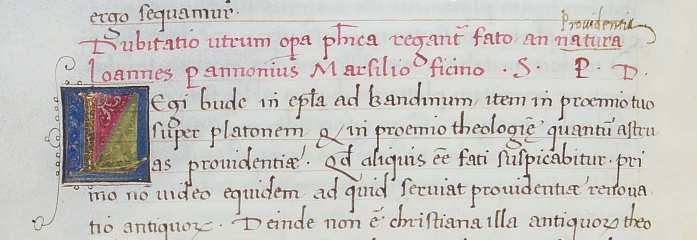 ergo sequamur.
Providentia
Dubitatio utrum opa phica regant᷒ fato an natura
Ioannes Pannonius Marsilio ficino . S. P. D.
LEgi bude in epła ad bandinum, item in proemio tuo
super platonem & in proemio theologię quantū astru
as providentiæ. Qd aliquis eē fati suspicabitur. pri
mo no video equidem ad quid serviat providentiæ renova
tio antiquoꝝ. Deinde non ē christiana illa antiquoꝝ theo